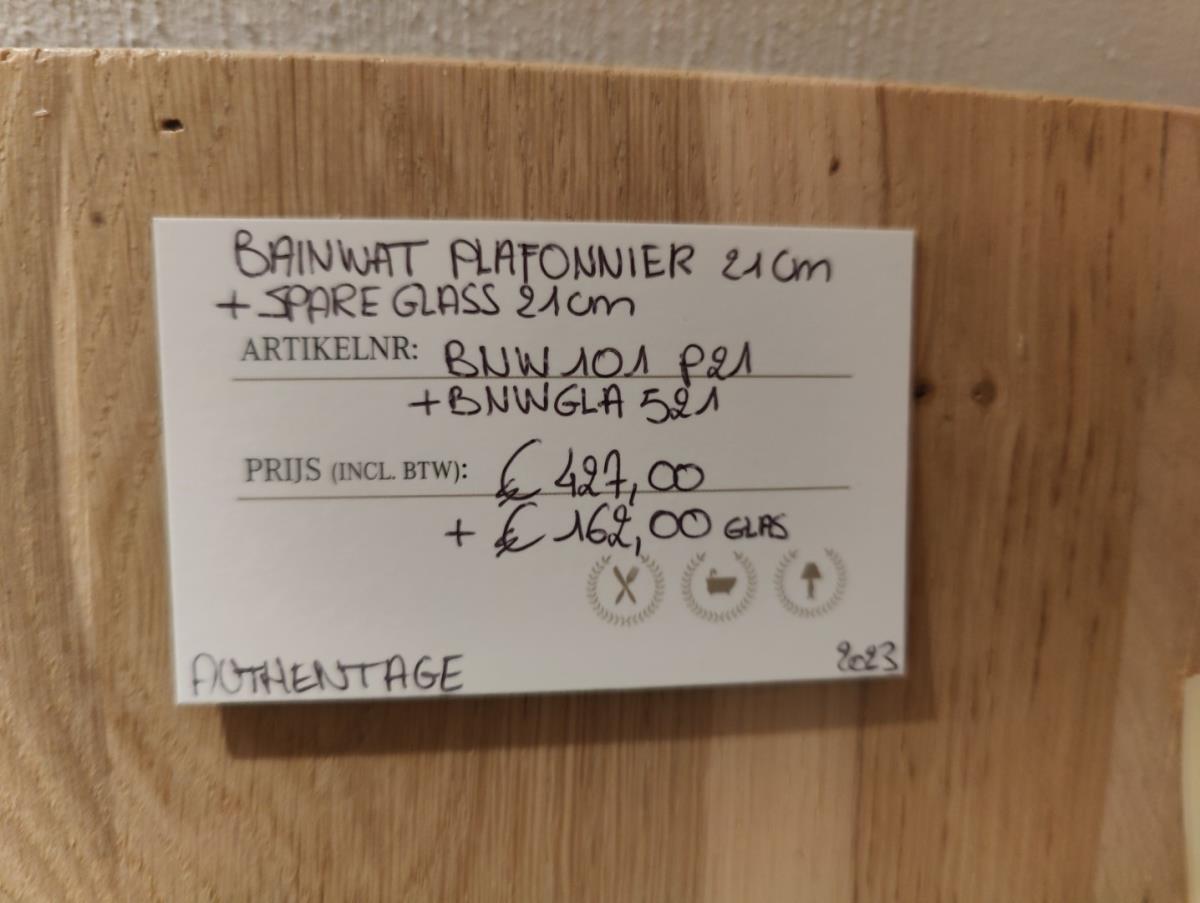 BAINWAT PLAFONNIER 21cm
+ SPARE GLASS 21cm
ARTIKELNR: BNW101 P21
+BNWGLA 521
PRIJS (INCL. BTW): € 427,00
+ € 162,00 GLAS
AUTHENTAGE 2023